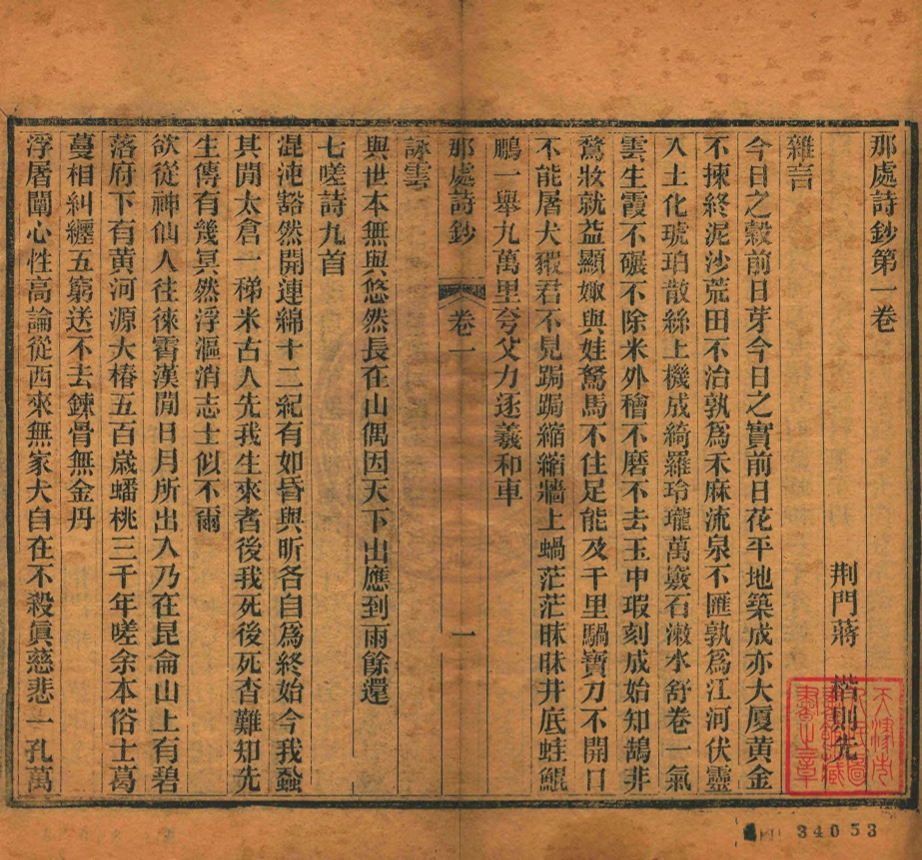 那處詩鈔第一卷
荆門蔣 楷則先
雜言
今日之穀前日芽今日之實前日花平地築成亦大厦黄金
不揀終泥沙荒田不治孰爲禾麻流泉不匯孰爲江河伏靈
入土化琥珀散絲上機成綺羅玲瓏萬竅石漱水舒卷一氣
雲生霞不碾不除米外穭不磨不去玉中瑕刻成始知鵠非
鶩妝就益顯娵與娃駑馬不住足能及千里騧寶刀不開口
不能屠犬豭君不見跼跼縮縮牆上蝸茫茫昧昧井底蛙鯤
鵬一舉九萬里夸父力逐羲和車
那處詩鈔 卷一 一
詠雲
與世本無與悠然長在山偶因天下出應到雨餘還
七嗟詩九首
混沌豁然開連綿十二紀有如昏與昕各自爲終始今我蝨
其閒太倉一稊米古人先我生來者後我死後死杳難知先
生傳有幾冥然浮漚消志士似不爾
欲從神仙人往徠霄漢閒日月所出入乃在昆侖山上有碧
落府下有黄河源大椿五百歲蟠桃三千年嗟余本俗士葛
蔓相糾纒五窮送不去鍊骨無金丹
浮屠闡心性高論從西來無家大自在不殺眞慈悲一孔萬
天津市人民圖書館藏書之章
34053